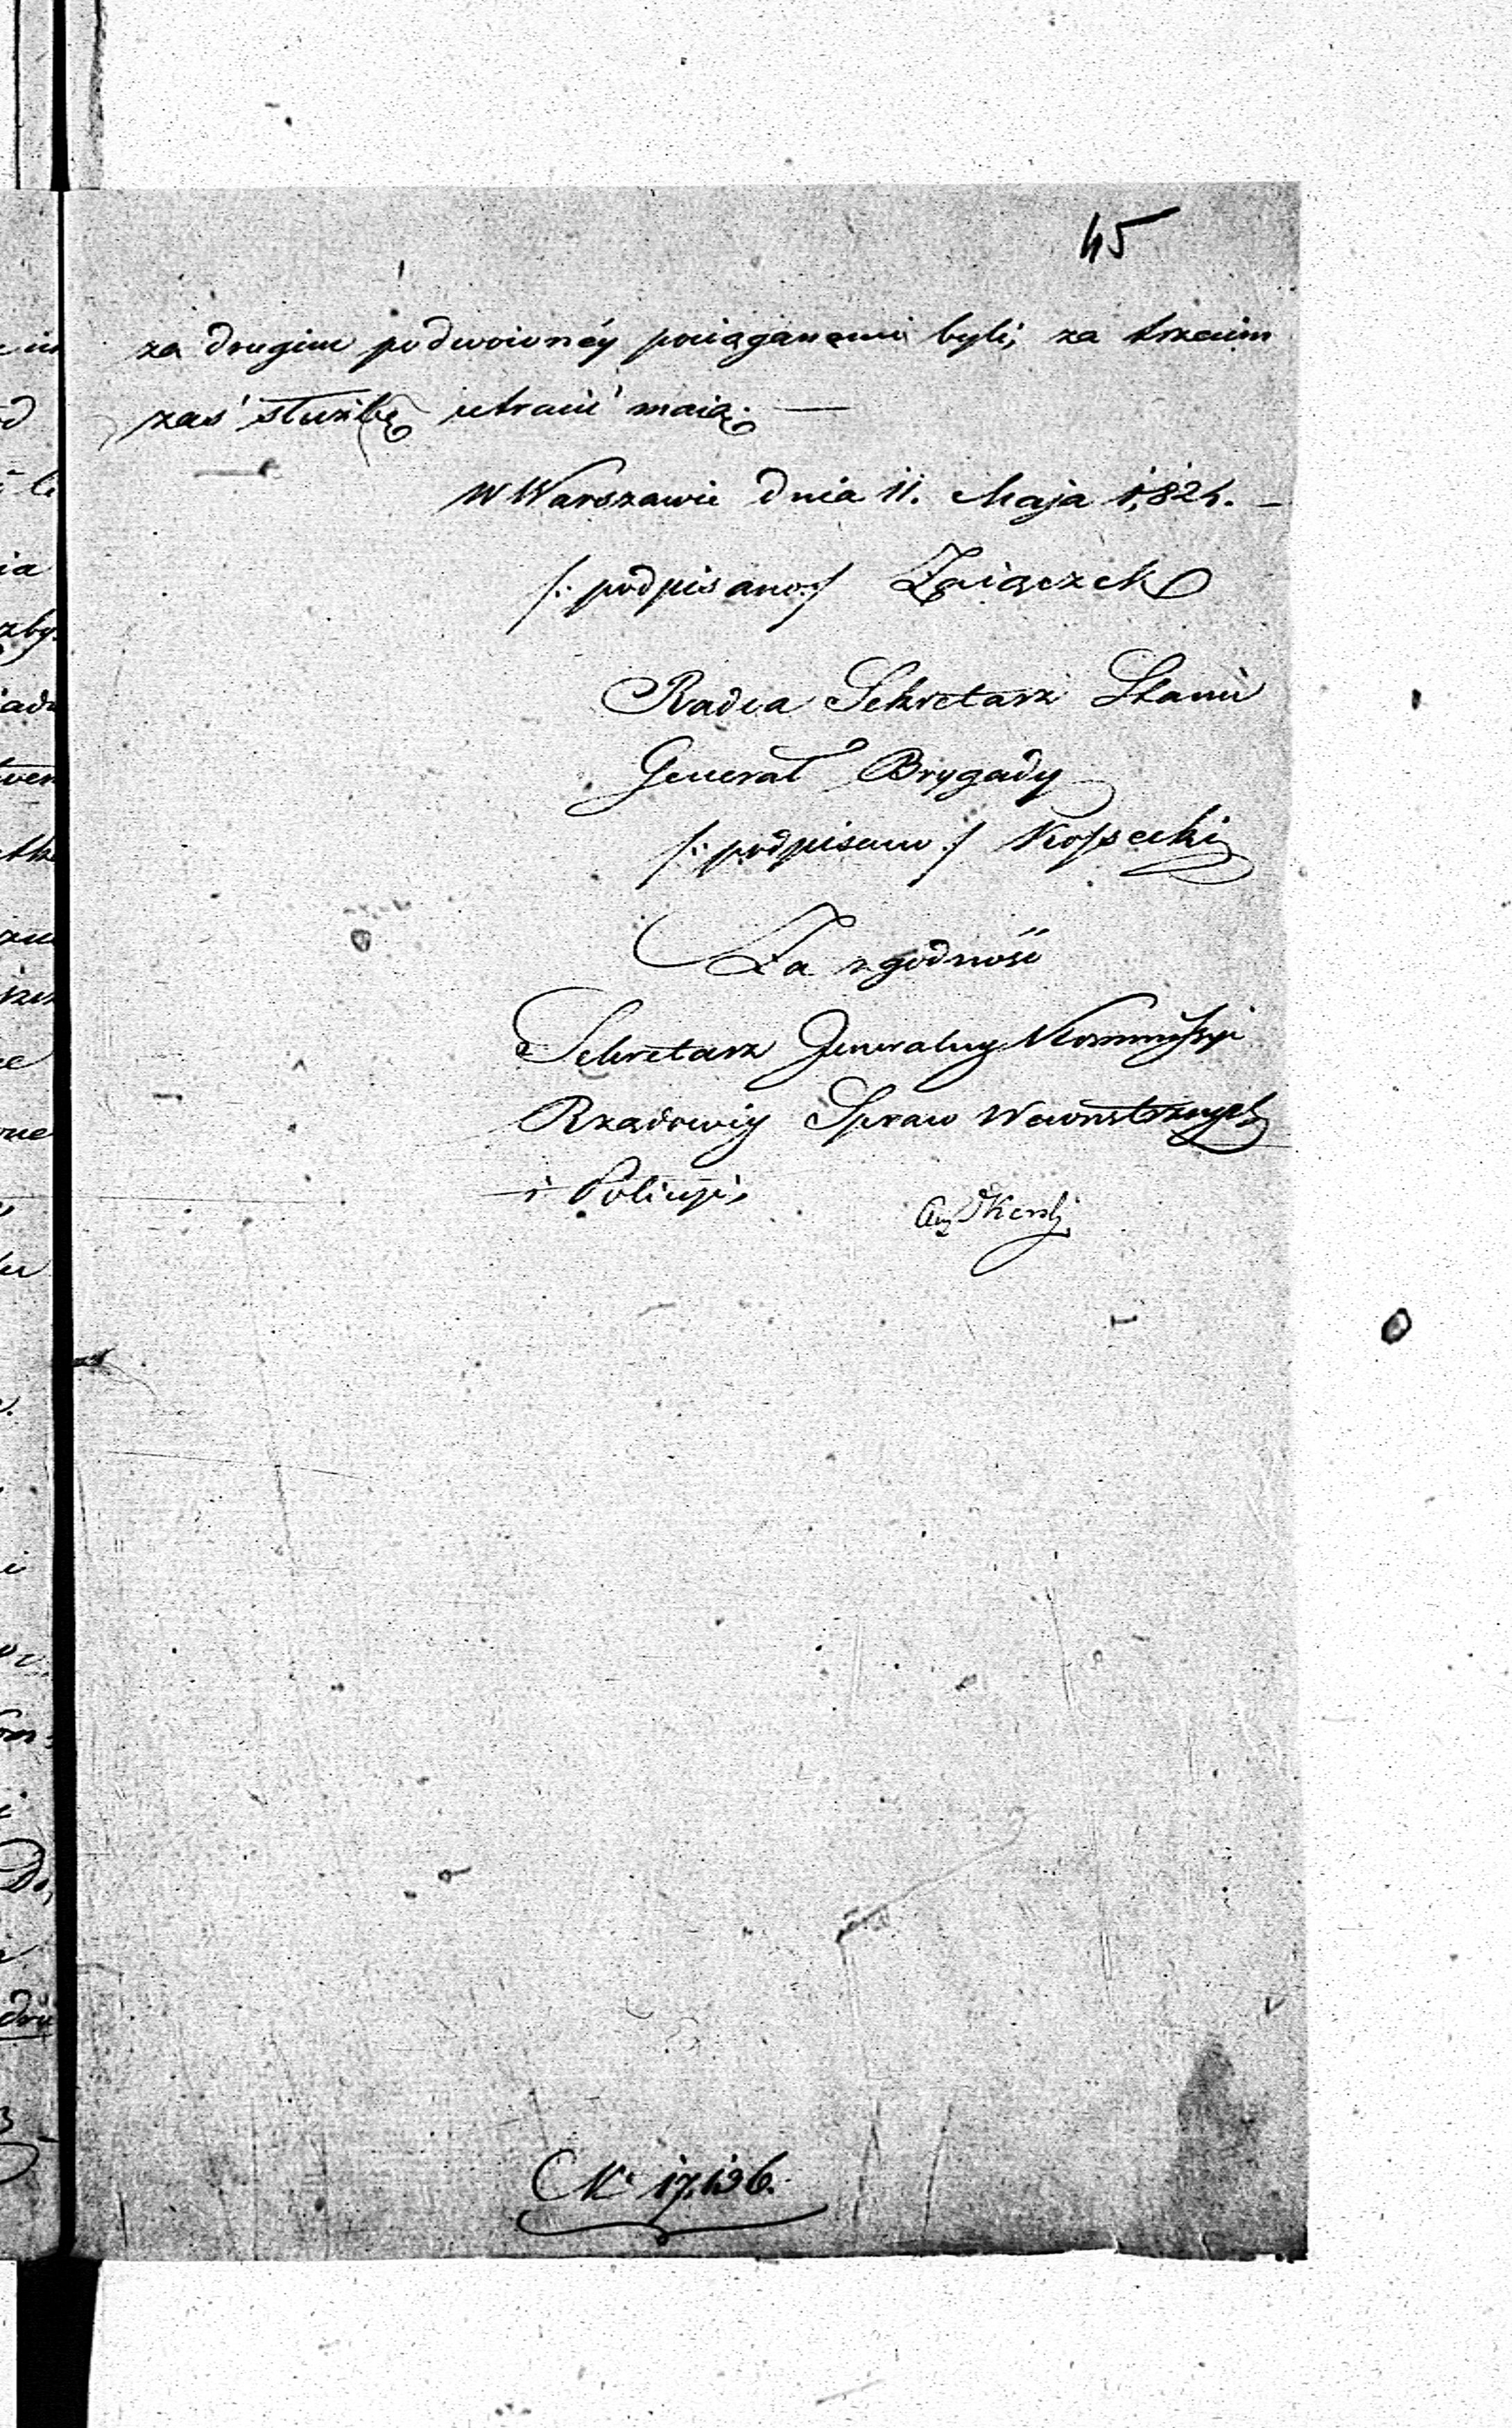 45
za drugim podwoionéy pociąganemi byli, za trzecim
zaś służbę utracić maią. —
w Warszawie dnia 11. Maja 1,824. —
/: podpisano :/ Zaiączek
Radca Sekretarz Stanu
Generał Brygady
/: podpisano :/ Kossecki
Za zgodność
Sekretarz Generalny Kommissyi
Rządowéy Spraw Wewnętrznych
i Policyi,
No 17,196.